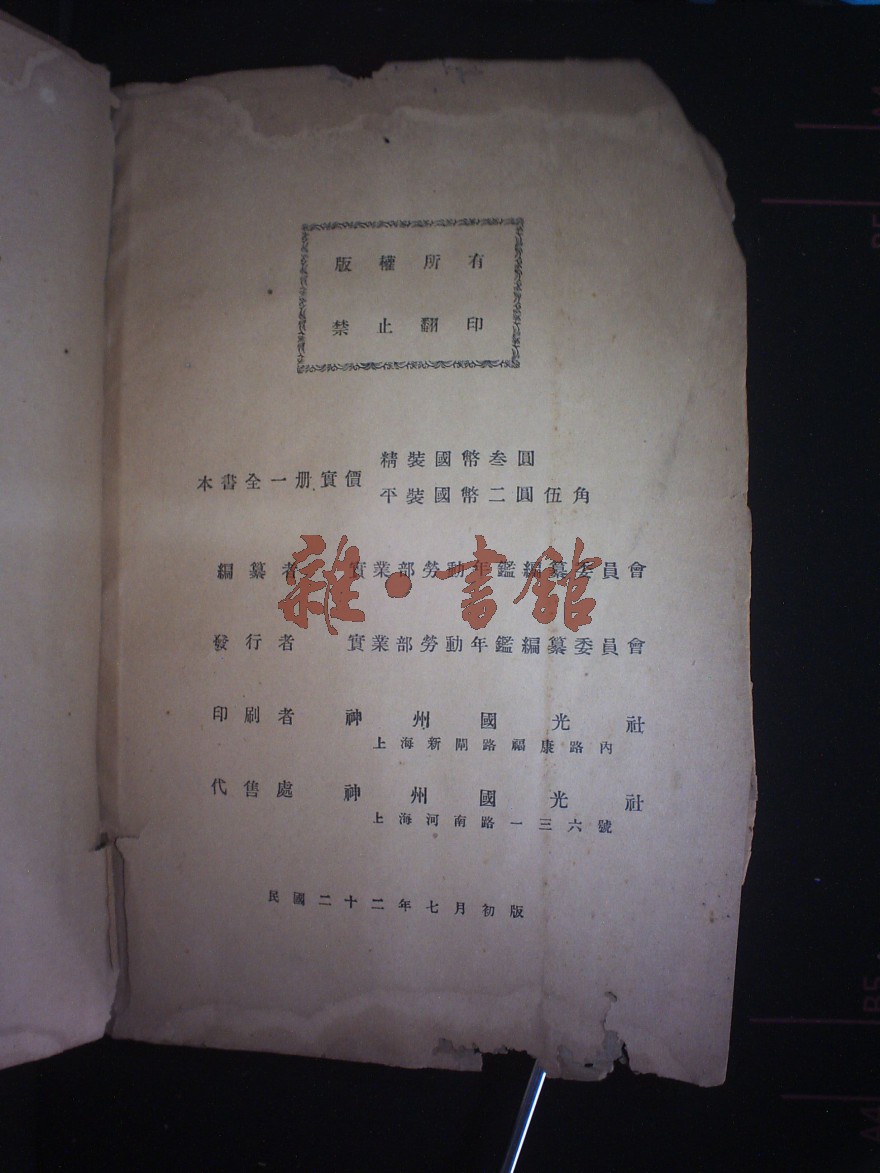 版權所有
禁止翻印
本書全一册實價
精裝國幣叁圓
平裝國幣二圓伍角
編纂者 實業部勞動年鑑編纂委員會
雜·書館
發行者 實業部勞動年鑑編纂委員會
印刷者 神州國光社
上海新閘路福康路內
代售處 神州國光社
上海河南路一三六號
民國二十二年七月初版
A4
B5
B5
A4